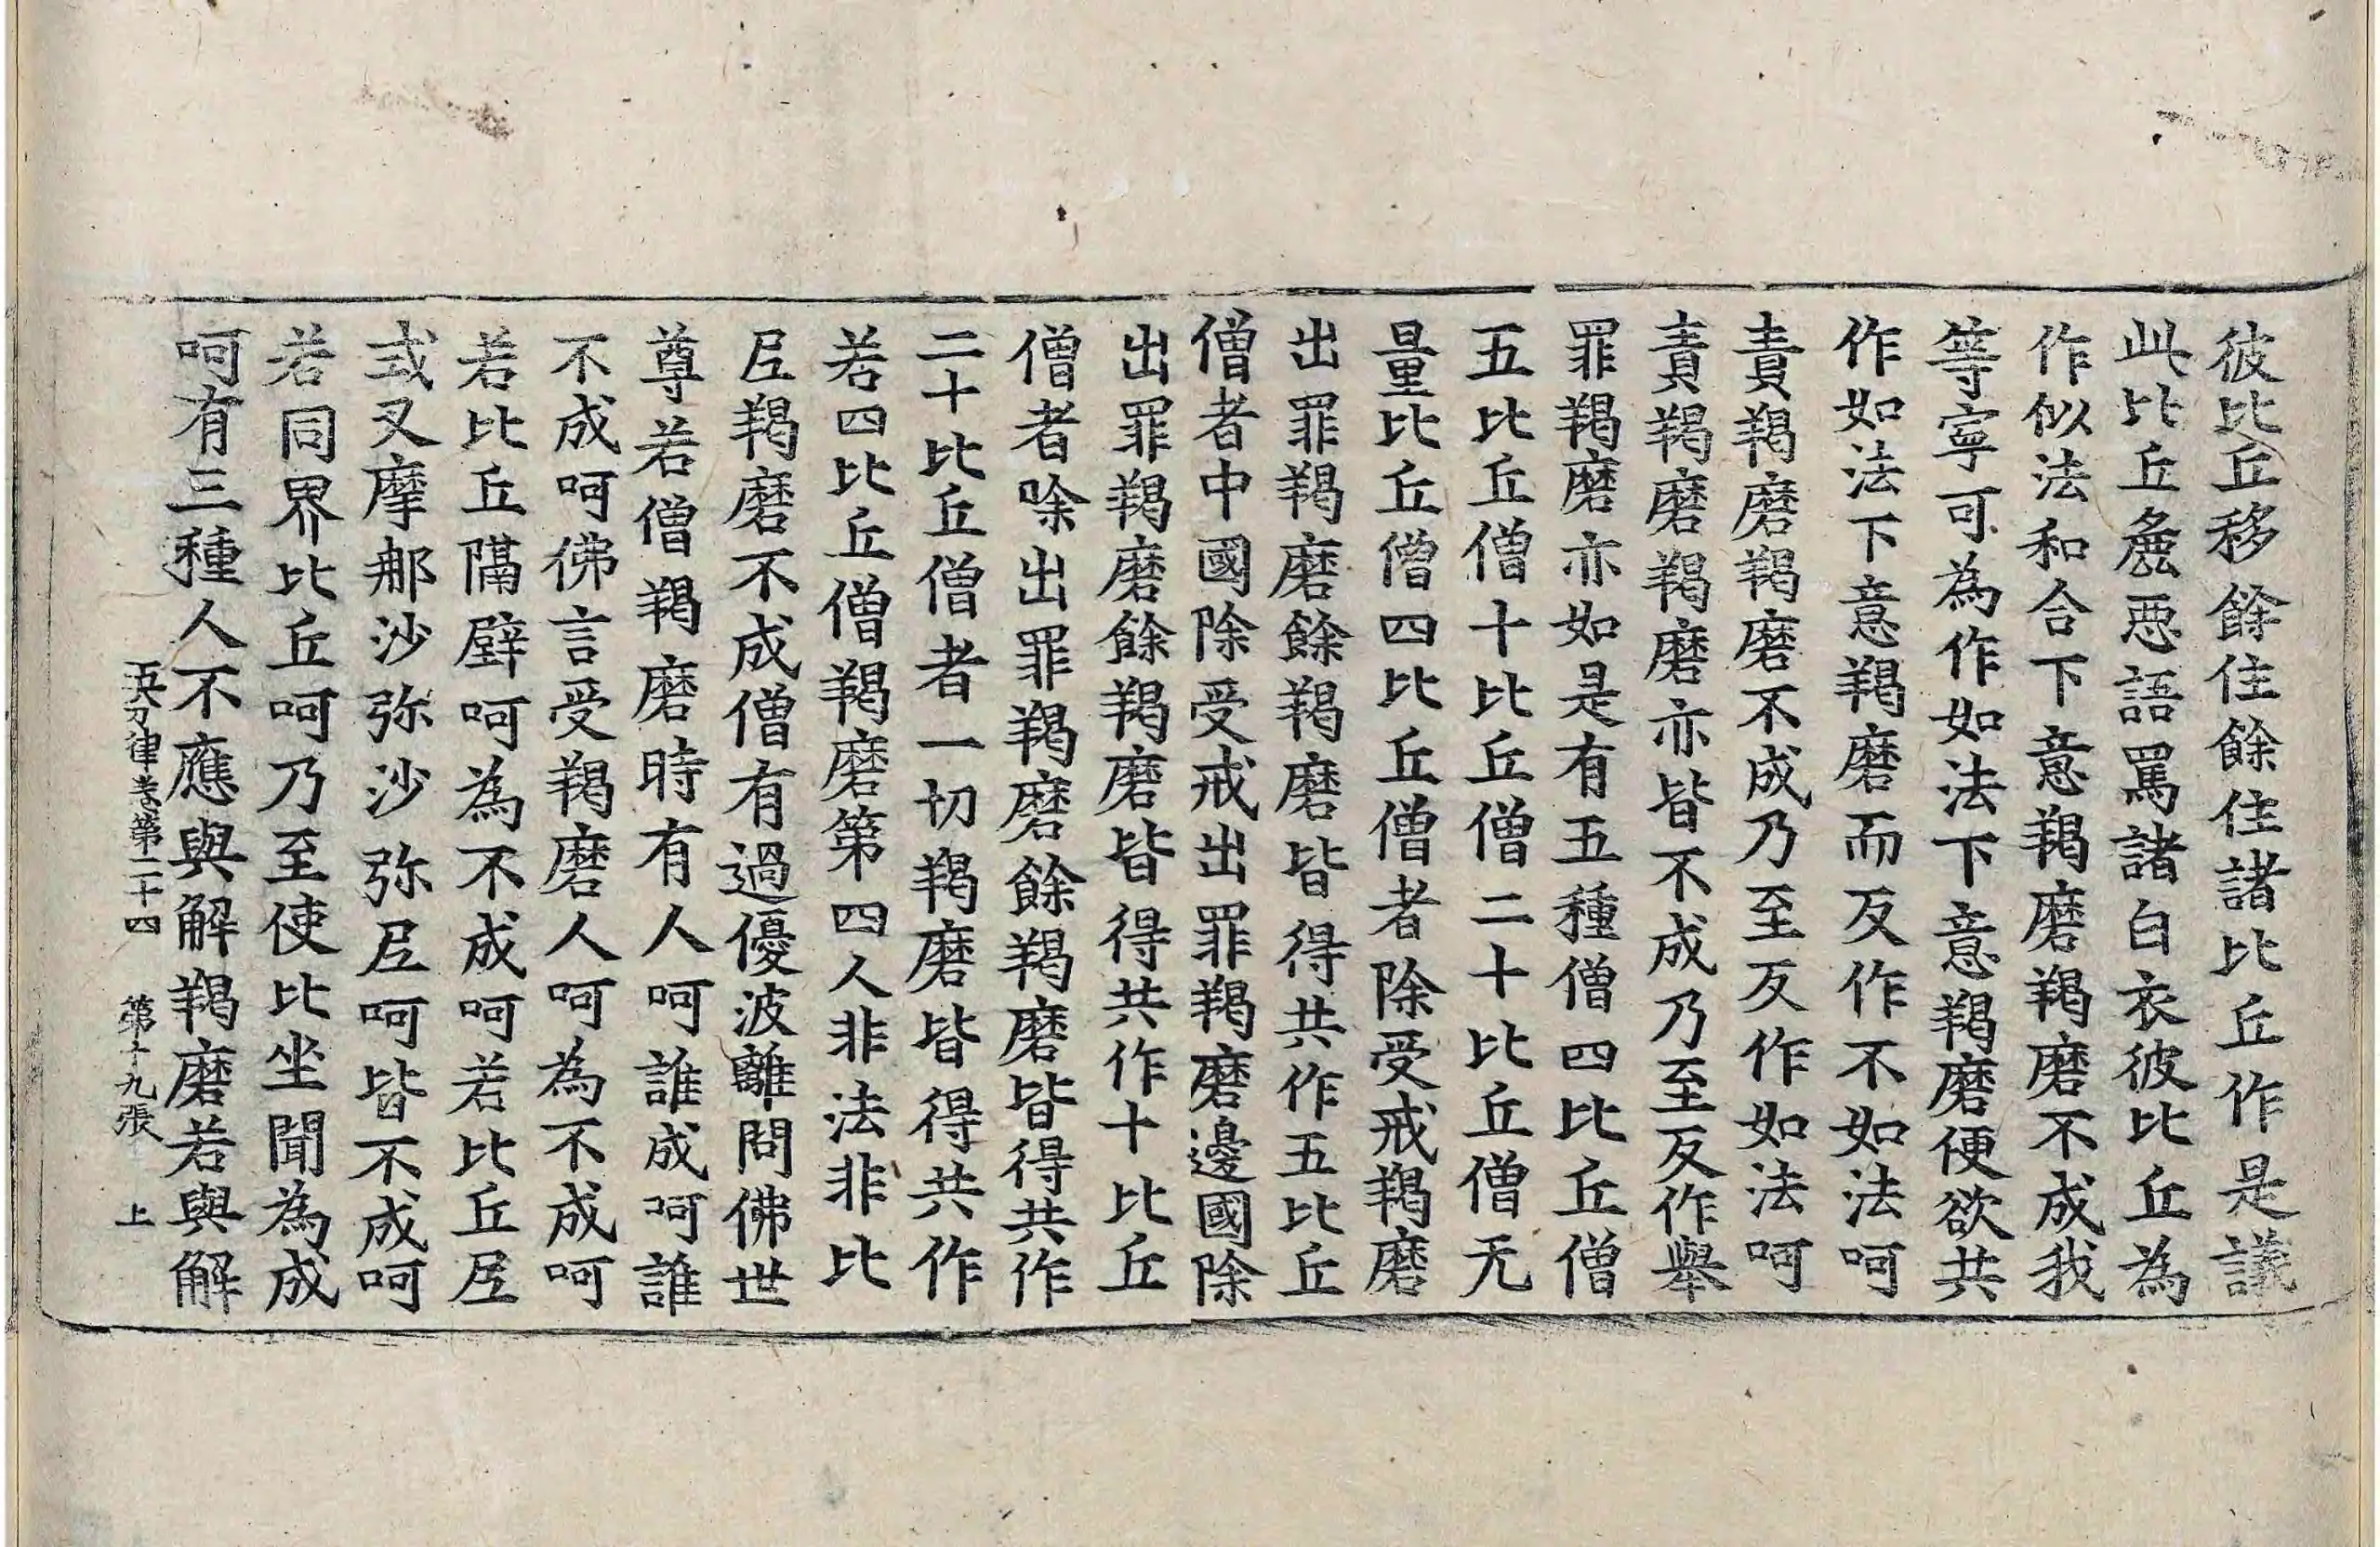 彼比丘移餘住餘住諸比丘作是議
此比丘麁惡語罵諸白衣彼比丘為
作似法和合下意羯磨羯磨不成我
等寧可為作如法下意羯磨便欲共
作如法下意羯磨而反作不如法呵
責羯磨羯磨不成乃至反作如法呵
責羯磨羯磨亦皆不成乃至反作舉
罪羯磨亦如是有五種僧四比丘僧
五比丘僧十比丘僧二十比丘僧无
量比丘僧四比丘僧者除受戒羯磨
出罪羯磨餘羯磨皆得共作五比丘
僧者中國除受戒出罪羯磨邊國除
出罪羯磨餘羯磨皆得共作十比丘
僧者除出罪羯磨餘羯磨皆得共作
二十比丘僧者一切羯磨皆得共作
若四比丘僧羯磨第四人非法非比
𡰱羯磨不成僧有過優波離問佛世
尊若僧羯磨時有人呵誰成呵誰
不成呵佛言受羯磨人呵為不成呵
若比丘隔壁呵為不成呵若比丘𡰱
式叉摩那沙弥沙弥𡰱呵皆不成呵
若同界比丘呵乃至使比坐聞為成
呵有三種人不應與解羯磨若與解
五分律卷第二十四 第十九張 上